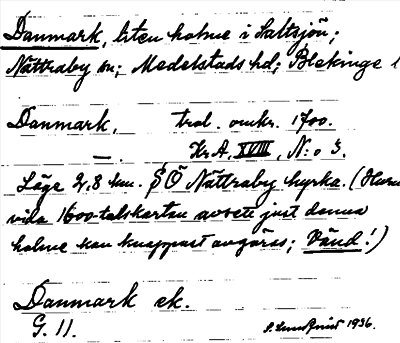 Danmark, liten holme i Saltsjön;
Nättraby sn; Medelstads hd; Blekinge l
Danmark, trol. omkr. 1700.
— . Kr. A. XVIII, N:o 3.
Läge 2,8 km. SÖ Nättraby kyrka. (Huru
vida 1600-talskartan avsett just denna
holme kan knappast avgöras; Vänd!)
Danmark ek.
G. 11. S. Lundquist 1936.